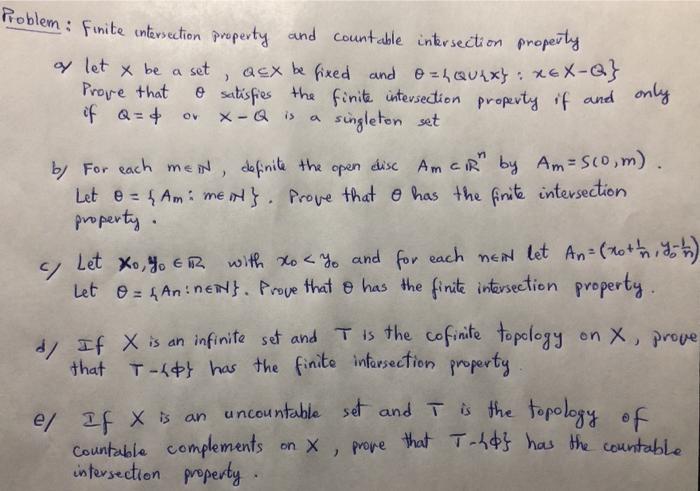 Problem: Finite intersection property and countable intersection property
a/ let X be a set, Q⊆X be fixed and θ = {Q∪{x} : x∈X-Q}
Prove that θ satisfies the finite intersection property if and only
if Q = ϕ or X-Q is a singleton set
b/ For each m∈ℕ, definite the open disc Am ⊂ ℝⁿ by Am = S(0,m).
Let θ = {Am : m∈ℕ}. Prove that θ has the finite intersection
property.
c/ Let x₀,y₀ ∈ ℝ with x₀ < y₀ and for each n∈ℕ let An = (x₀+1/n, y₀-1/n)
Let θ = {An : n∈ℕ}. Prove that θ has the finite intersection property.
d/ If X is an infinite set and T is the cofinite topology on X, prove
that T-{ϕ} has the finite intersection property.
e/ If X is an uncountable set and T is the topology of
countable complements on X, prove that T-{ϕ} has the countable
intersection property.